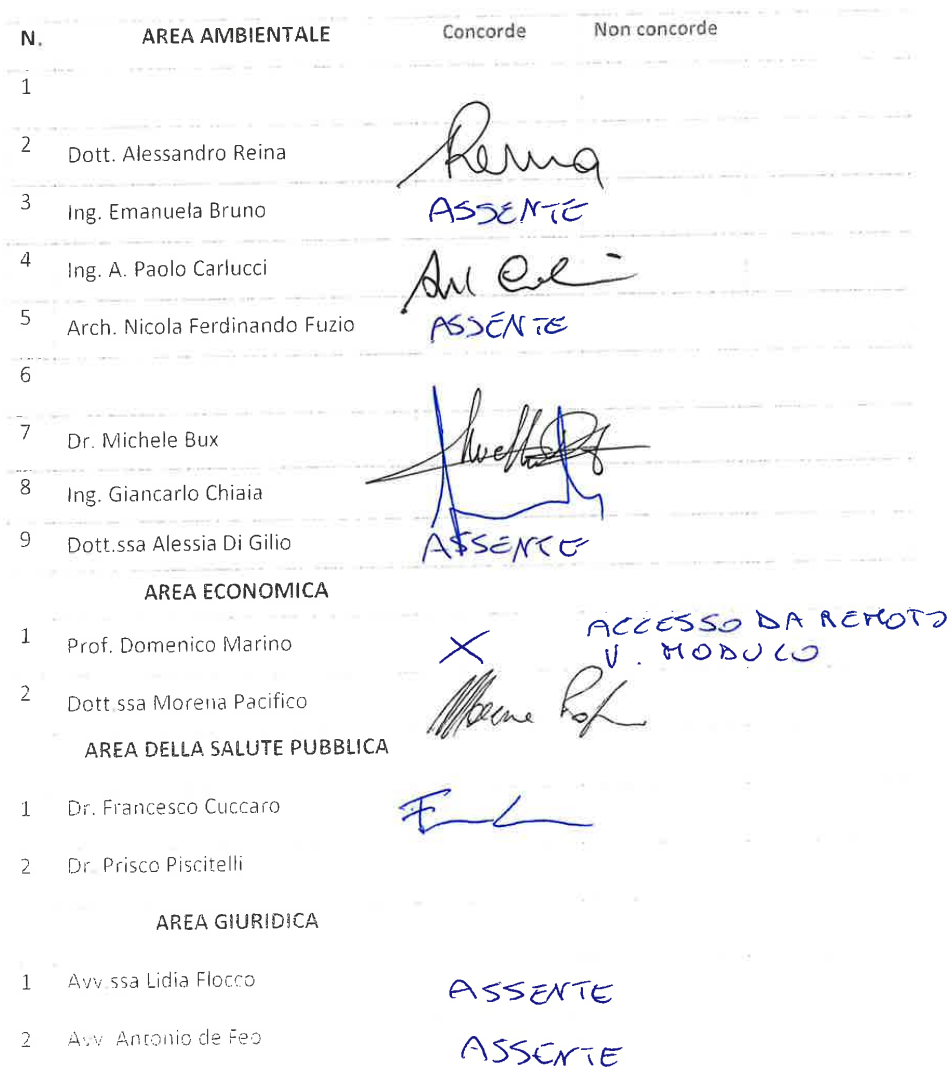 N. AREA AMBIENTALE Concorde Non concorde
1
2 Dott. Alessandro Reina Reina
3 Ing. Emanuela Bruno ASSENTE
4 Ing. A. Paolo Carlucci
5 Arch. Nicola Ferdinando Fuzio ASSENTE
6
7 Dr. Michele Bux
8 Ing. Giancarlo Chiaia
9 Dott.ssa Alessia Di Gilio ASSENTE
AREA ECONOMICA
1 Prof. Domenico Marino X ACCESSO DA REMOTO
V. MODULO
2 Dott.ssa Morena Pacifico
AREA DELLA SALUTE PUBBLICA
1 Dr. Francesco Cuccaro
2 Dr. Prisco Piscitelli
AREA GIURIDICA
1 Avv.ssa Lidia Flocco ASSENTE
2 Avv. Antonio de Feo ASSENTE